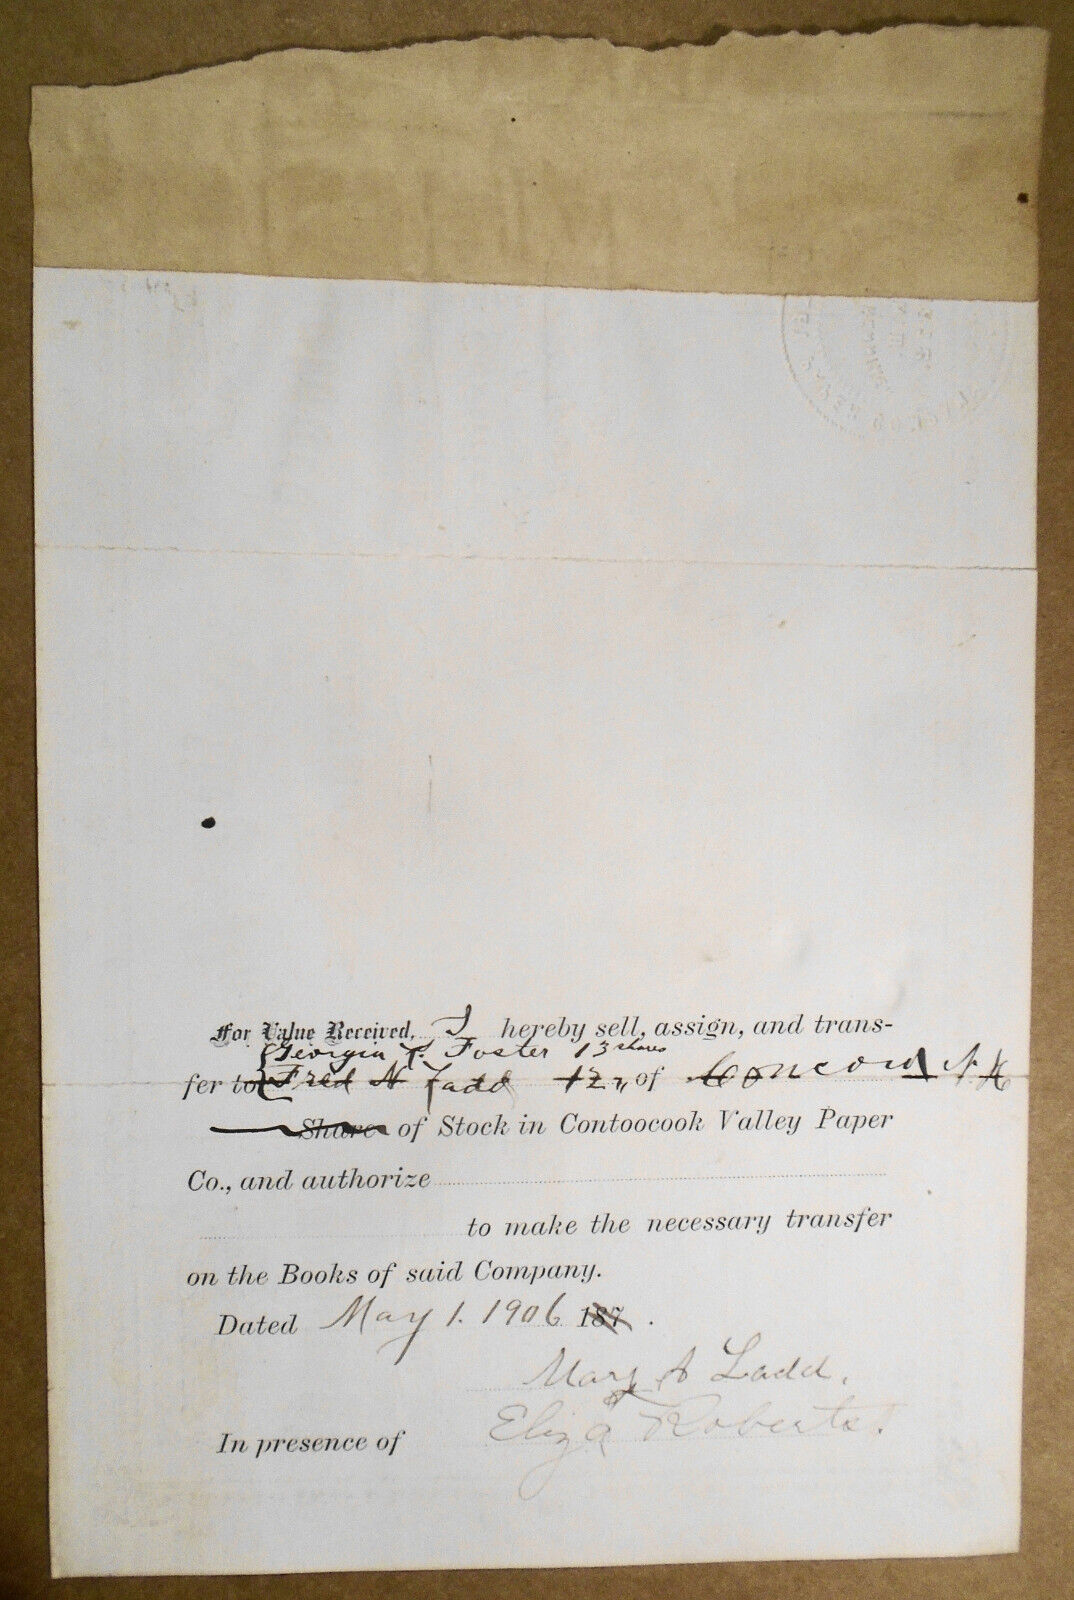 For Value Received, I hereby sell, assign, and trans-
Georgia L. Foster 13 shares
fer to Fred N Ladd 12 " of Concord N H
Share of Stock in Contoocook Valley Paper
Co., and authorize
to make the necessary transfer
on the Books of said Company.
Dated May 1. 1906 187 .
Mary A Ladd.
In presence of Eliza Roberts.